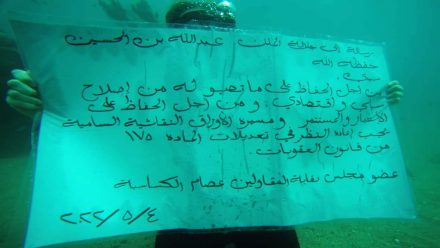 رسالة إلى جلالة الملك عبدالله بن الحسين
حفظه الله
سيدي:
من أجل الحفاظ على ما تصبو له من إصلاح
سياسي واقتصادي. ومن أجل الحفاظ على
الاستثمار والمستثمر ومسيرة الأوراق النقاشية السامية
يجب إعادة النظر في تعديلات المادة ١٧٥
من قانون العقوبات.
عضو مجلس نقابة المقاولين عصام الكساسبة
٢٠٢٢/٥/٤